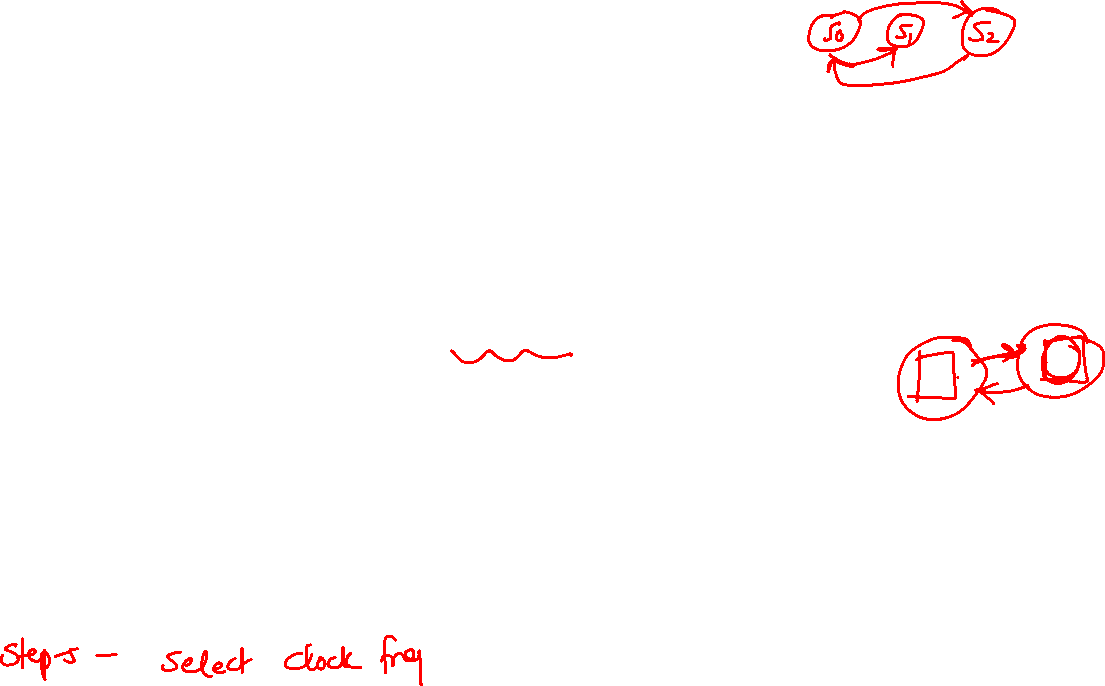 S0 S1 S2
Step-5 - Select Clock freq